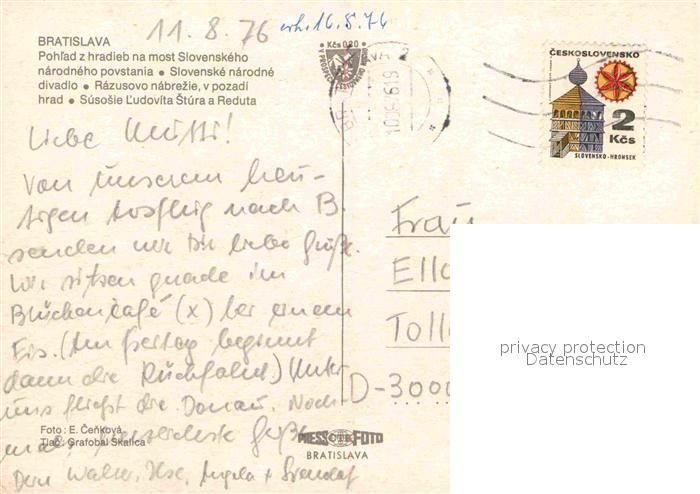 11.8.76 erh. 16.8.76
BRATISLAVA
Pohľad z hradieb na most Slovenského
národného povstania • Slovenské národné
divadlo • Rázusovo nábrežie, v pozadí
hrad • Súsošie Ľudovíta Štúra a Reduta
Kčs 0,20
ČESKOSLOVENSKO
2
Kčs
SLOVENSKO - HRONSEK
Liebe Mutti!
Von unserem heu-
tigen Ausflug nach B.
senden wir Dir liebe Grüße.
Wir sitzen gerade im
Brückencafé (x) bei einem
Eis. (Am Freitag beginnt
dann die Rückfahrt) Unter
uns fließt die Donau. Noch-
mals herzlichste Grüße
Dein Walter, Ilse, Angela +
Frau
Ella
Toll
D-3000
privacy protection
Datenschutz
Foto: E. Čeňková
Tlač: Grafobal Skalica
PRESSFOTO
BRATISLAVA